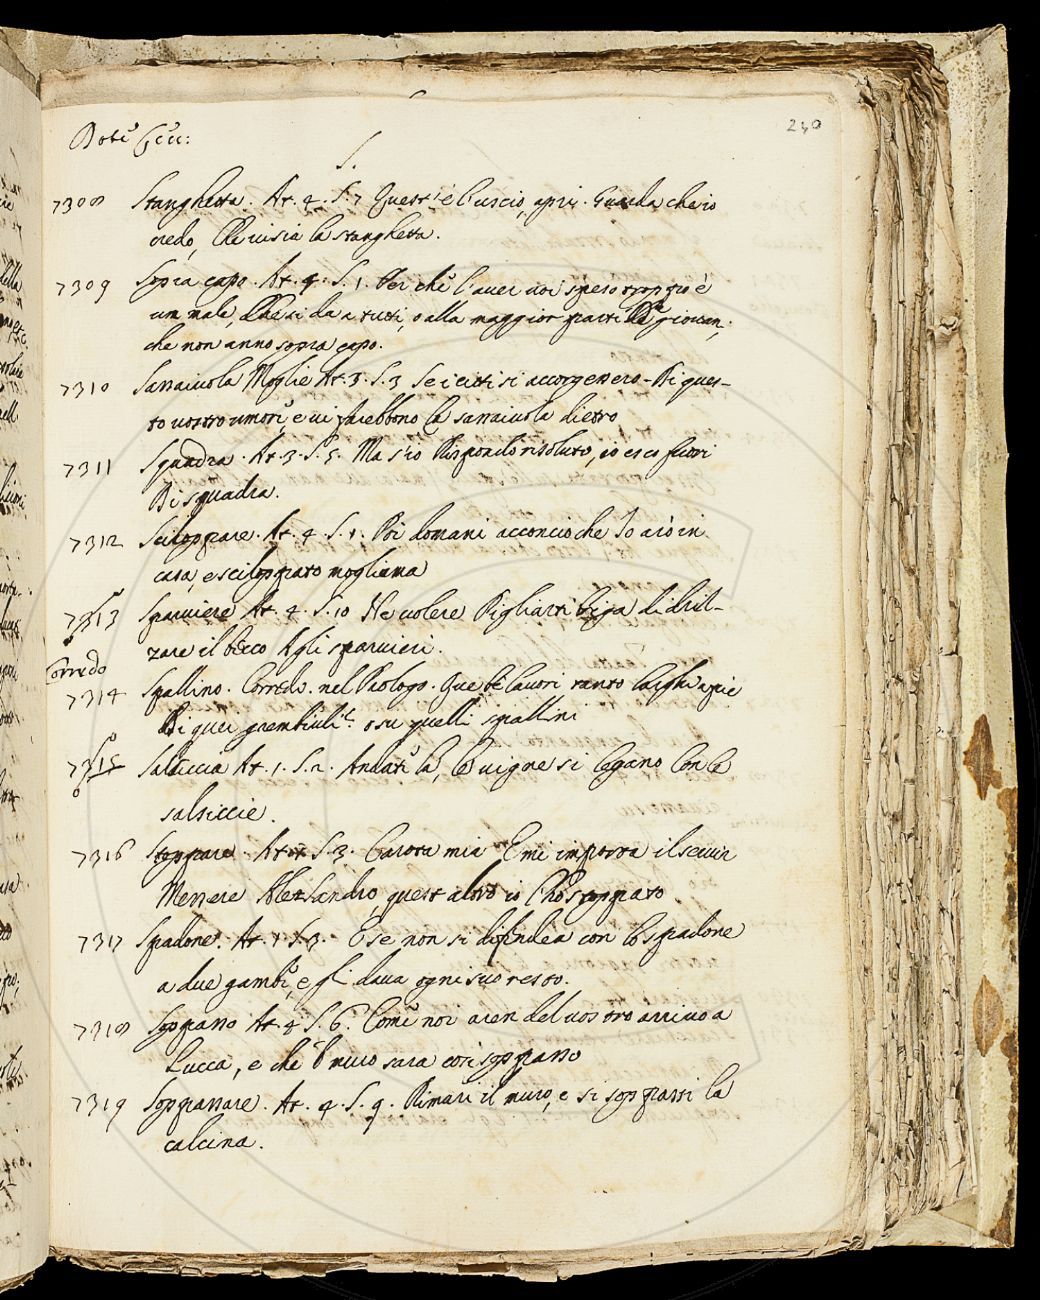 240
S.
7308 Stanghetta. At. 4. S. 7 Quest'è l'uscio, apri. Guarda che io
credo, che vi sia la stanghetta.
7309 Sopra capo. At. 4. S. 1. Per che l'aver voi speso
un male, che si da a tutti, o alla maggior parte de giovan,
che non anno sopra capo.
7310 Serraiuola Moglie At. 3. S. 3 Se i citti si accorgessero di ques-
to vostro umore, e vi farebbono la serraiuola dietro
7311 Squadra. At. 3. S. 5. Ma s'io Rispondo risoluto, io esco fuori
Di squadra.
7312 Sciloppare. At. 4. S. 1. Di domani acconcio che Io arò in
casa, e sciloppato mogliama
7313 Sparviere At. 4. S. 10 Ne volere Pigliarti briga di driz-
zare il becco Agli sparvieri.
Corredo
7314 Spallino. Corredo. nel Prologo. Que be lavori tanto larghi apie
Di quei grembiuli o su quelli spallini
7315 Salsiccia At. 1. S. 2. Andate là, le vigne si legano con le
salsiccie.
7316 Stoppare. At. S. 3. Carota mia E mi importa il servir
Messere Alessandro, quest altro io l'hò stoppato
7317 Spadone. At. 1 S. 3. E se non si difendea con lo spadone
a due gambe, e gli dava ogni suo resto.
7318 Soppasso At. 4 S. 6. Come noi aren del vostro arrivo a
Lucca, e che 'l muro sara così soppasso
7319 Soppassare. At. 4. S. 9. Rimari il muro, e si soppassi la
calcina.